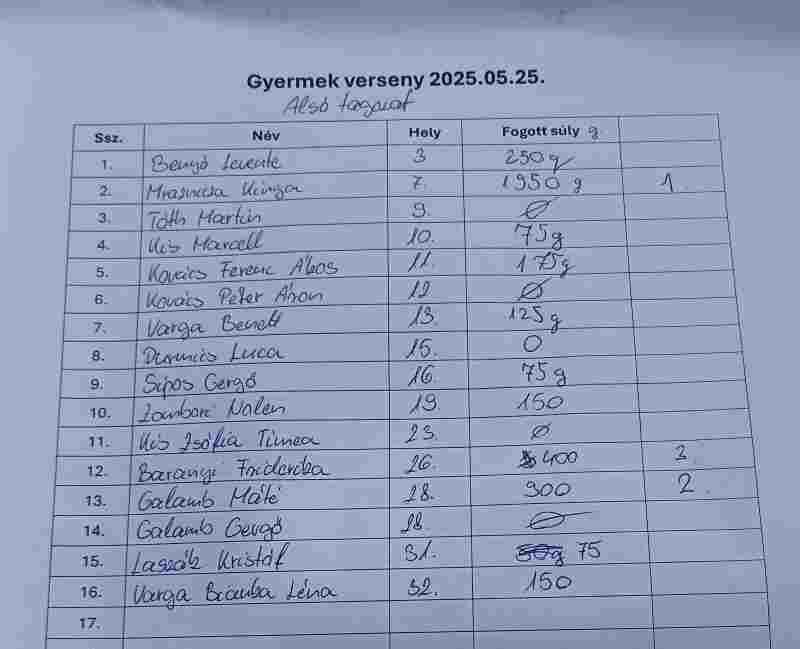 Gyermek verseny 2025.05.25.
Alsó tagozat
Ssz. Név Hely Fogott súly g
1. Benyó Levente 3 250g
2. Kinga 7. 1950 g 1
3. Tóth Martin 9. Ø
4. Kis Marcell 10. 75g
5. Kovács Ferenc Ákos 11. 175g
6. Kovács Péter Áron 12 Ø
7. Varga Benett 13. 125g
8. Luca 15. 0
9. Sipos Gergő 16. 75g
10. Zombori Nolen 19. 150
11. Kis Zsófia Tímea 23. Ø
12. Baranyi 26. 400 3.
13. Galamb Máté 28. 900 2.
14. Galamb Gergő Ø
15. Kristóf 31. 75
16. Varga Bianka Léna 32. 150
17.